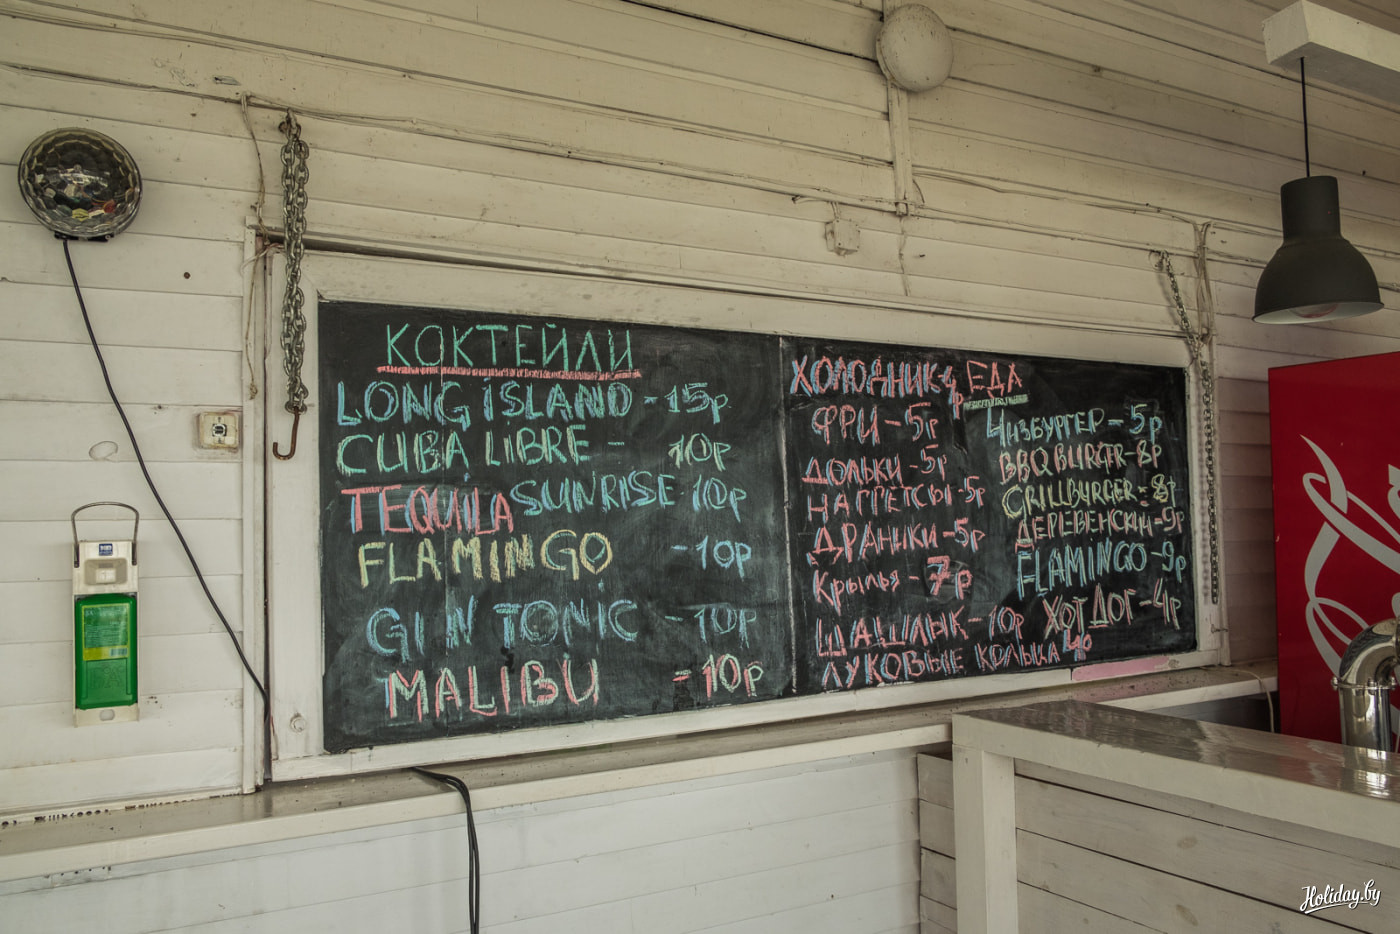 КОКТЕЙЛИ
LONG ISLAND - 15р
CUBA LIBRE - 10р
TEQUILA SUNRISE 10р
FLAMINGO - 10р
GIN TONIC - 10р
MALIBU - 10р
ХОЛОДНИК-4р
ФРИ - 5р
ДОЛЬКИ - 5р
НАГГЕТСЫ - 5р
ДРАНИКИ - 5р
Крылья - 7р
ШАШЛЫК - 10р
ЛУКОВЫЕ КОЛЬЦА
ЕДА
ЧИЗБУРГЕР - 5р
BBQ BURGER - 8р
GRILLBURGER - 8р
ДЕРЕВЕНСКИЙ - 9р
FLAMINGO - 9р
ХОТ ДОГ - 4р
Holiday.by